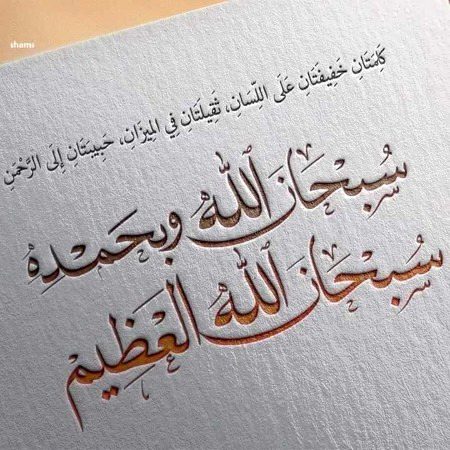 shams
كَلِمَتَانِ خَفِيفَتَانِ عَلَى اللِّسَانِ، ثَقِيلَتَانِ فِي المِيزَانِ، حَبِيبَتَانِ إِلَى الرَّحْمَنِ
سُبْحَانَ اللهِ وبِحَمْدِهِ
سُبْحَانَ اللهِ العَظِيمِ